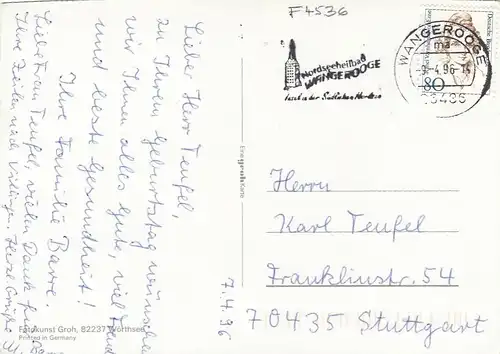 F4536
Nordseeheilbad
WANGEROOGE
WANGEROOGE
ma
-9.-4.96-14
80
26486
Lieber Herr Teufel,
zu Ihrem Geburtstag wünschen
wir Ihnen alles Gute, viel Freude
und beste Gesundheit!
Ihre Familie Barre.
Liebe Frau Teufel, vielen Dank für
Ihre Zeilen nach Villingen. Herzl. Grüße
7.4.96
Eine groh Karte
Herrn
Karl Teufel
Franklinstr. 54
70435 Stuttgart
Fotokunst Groh, 82237 Wörthsee
Printed in Germany